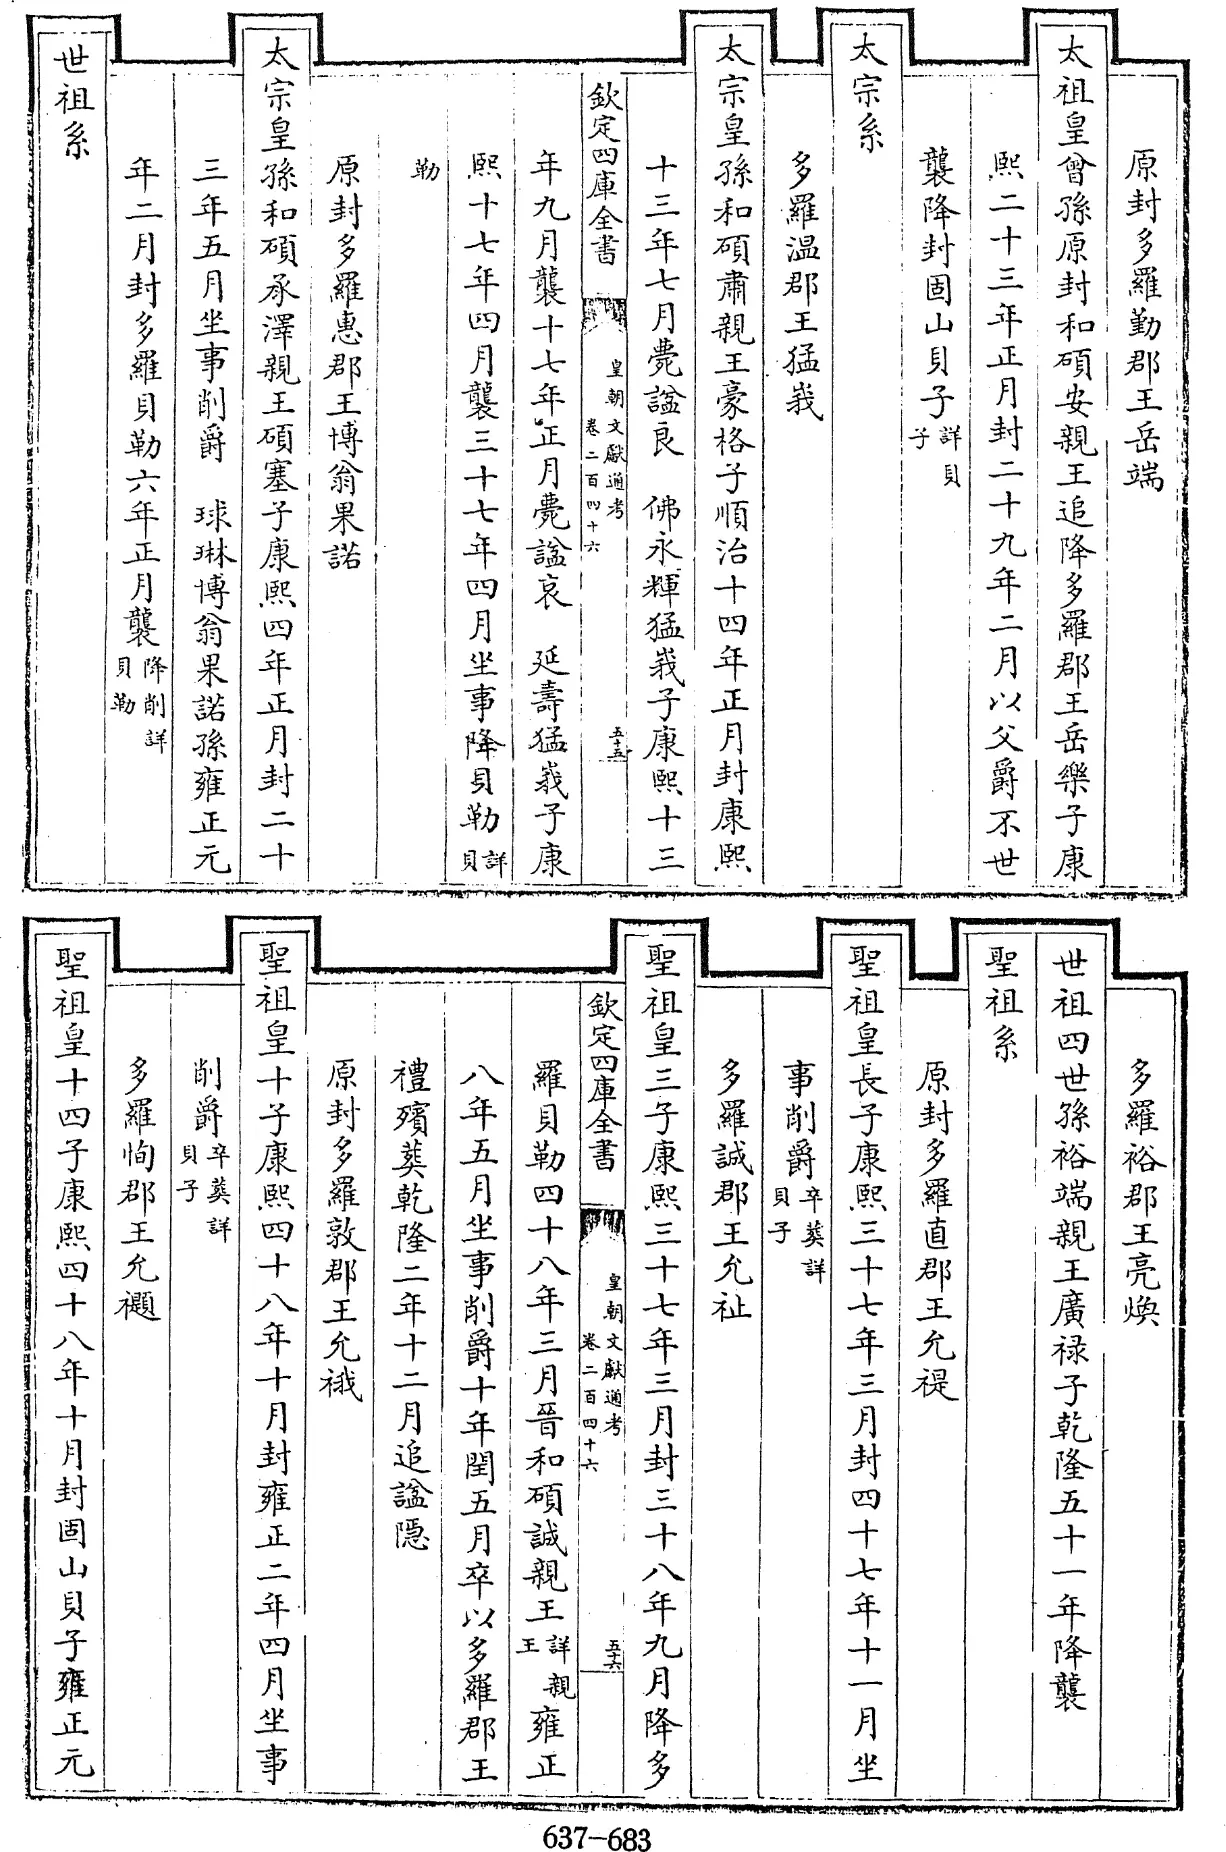 原封多羅勤郡王岳端
太祖皇曾孫原封和碩安親王追降多羅郡王岳樂子康
熙二十三年正月封二十九年二月以父爵不世
襲降封固山貝子詳貝子
太宗系
多羅温郡王猛峩
太宗皇孫和碩肅親王豪格子順治十四年正月封康熙
十三年七月薨諡良　佛永輝猛峩子康熙十三
欽定四庫全書　皇朝文獻通考卷二百四十六　五十五
年九月襲十七年正月薨諡哀　延壽猛峩子康
熙十七年四月襲三十七年四月坐事降貝勒詳貝
勒
原封多羅惠郡王博翁果諾
太宗皇孫和碩承澤親王碩塞子康熙四年正月封二十
三年五月坐事削爵　球琳博翁果諾孫雍正元
年二月封多羅貝勒六年正月襲降削詳貝勒
世祖系
多羅裕郡王亮煥
世祖四世孫裕端親王廣禄子乾隆五十一年降襲
聖祖系
原封多羅直郡王允禔
聖祖皇長子康熙三十七年三月封四十七年十一月坐
事削爵卒葬詳貝子
多羅誠郡王允祉
聖祖皇三子康熙三十七年三月封三十八年九月降多
欽定四庫全書　皇朝文獻通考卷二百四十六　五十六
羅貝勒四十八年三月晉和碩誠親王詳親王雍正
八年五月坐事削爵十年閏五月卒以多羅郡王
禮殯葬乾隆二年十二月追諡隱
原封多羅敦郡王允䄉
聖祖皇十子康熙四十八年十月封雍正二年四月坐事
削爵卒葬詳貝子
多羅恂郡王允禵
聖祖皇十四子康熙四十八年十月封固山貝子雍正元
637-683